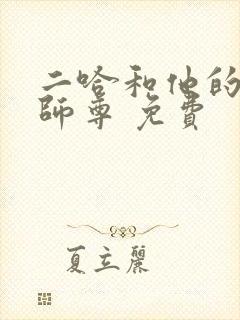 二哈和他的
師尊 免費
夏立麗